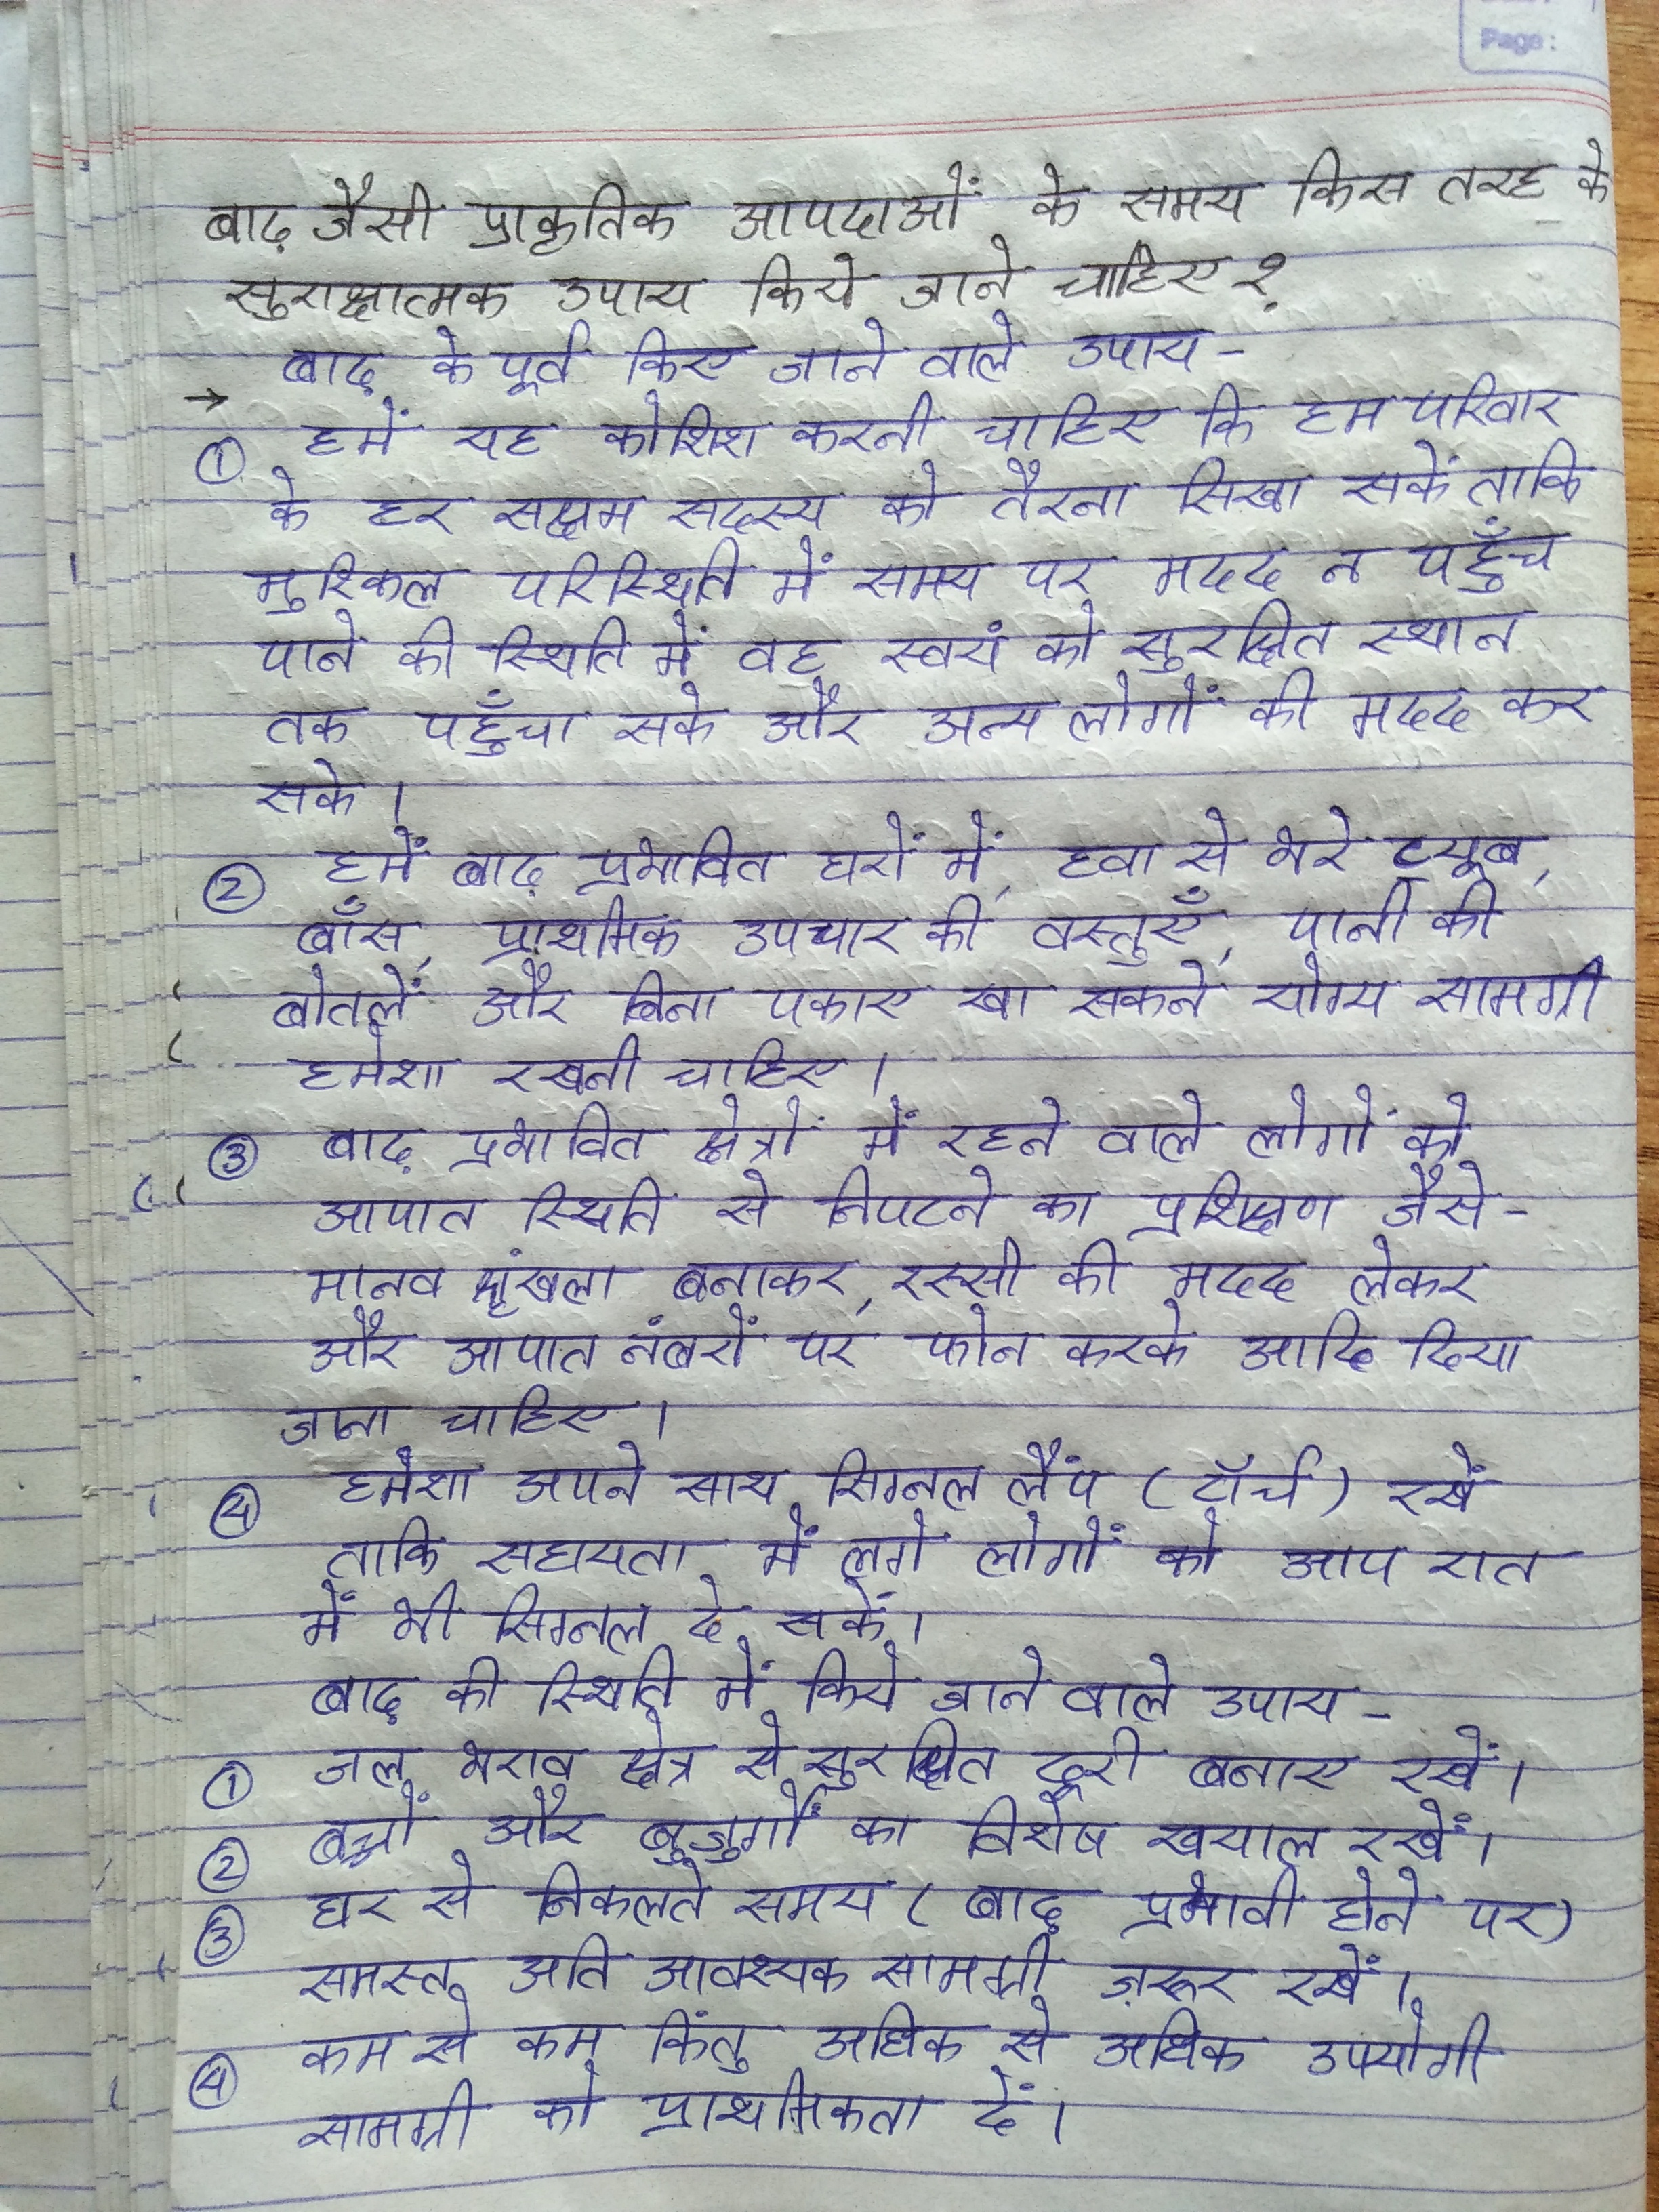 Page :
बाढ़ जैसी प्राकृतिक आपदाओं के समय किस तरह के
सुराक्षात्मक उपाय किये जाने चाहिए ?
बाढ़ के पूर्व किए जाने वाले उपाय -
→
① हमें यह कोशिश करनी चाहिए कि हम परिवार
के हर सक्षम सदस्य को तैरना सिखा सकें ताकि
मुश्किल परिस्थिति में समय पर मदद न पहुँच
पाने की स्थिति में वह स्वयं को सुरक्षित स्थान
तक पहुँचा सके और अन्य लोगों की मदद कर
सके ।
② हमें बाढ़ प्रभावित घरों में, हवा से भरे ट्यूब,
बाँस, प्राथमिक उपचार की वस्तुएँ, पानी की
बोतलें और बिना पकाए खा सकने योग्य सामग्री
हमेशा रखनी चाहिए ।
③ बाढ़ प्रभावित क्षेत्रों में रहने वाले लोगों को
आपात स्थिति से निपटने का प्रशिक्षण जैसे -
मानव शृंखला बनाकर, रस्सी की मदद लेकर
और आपात नंबरों पर फोन करके आदि दिया
जाना चाहिए ।
④ हमेशा अपने साथ सिग्नल लैंप ( टॉर्च ) रखें
ताकि सहायता में लगे लोगों को आप रात
में भी सिग्नल दे सकें ।
बाढ़ की स्थिति में किये जाने वाले उपाय -
① जल भराव क्षेत्र से सुरक्षित दूरी बनाए रखें ।
② बच्चों और बुजुर्गों का विशेष खयाल रखें ।
③ घर से निकलते समय ( बाढ़ प्रभावी होने पर )
समस्त अति आवश्यक सामग्री ज़रूर रखें ।
④ कम से कम किंतु अधिक से अधिक उपयोगी
सामग्री को प्राथमिकता दें ।